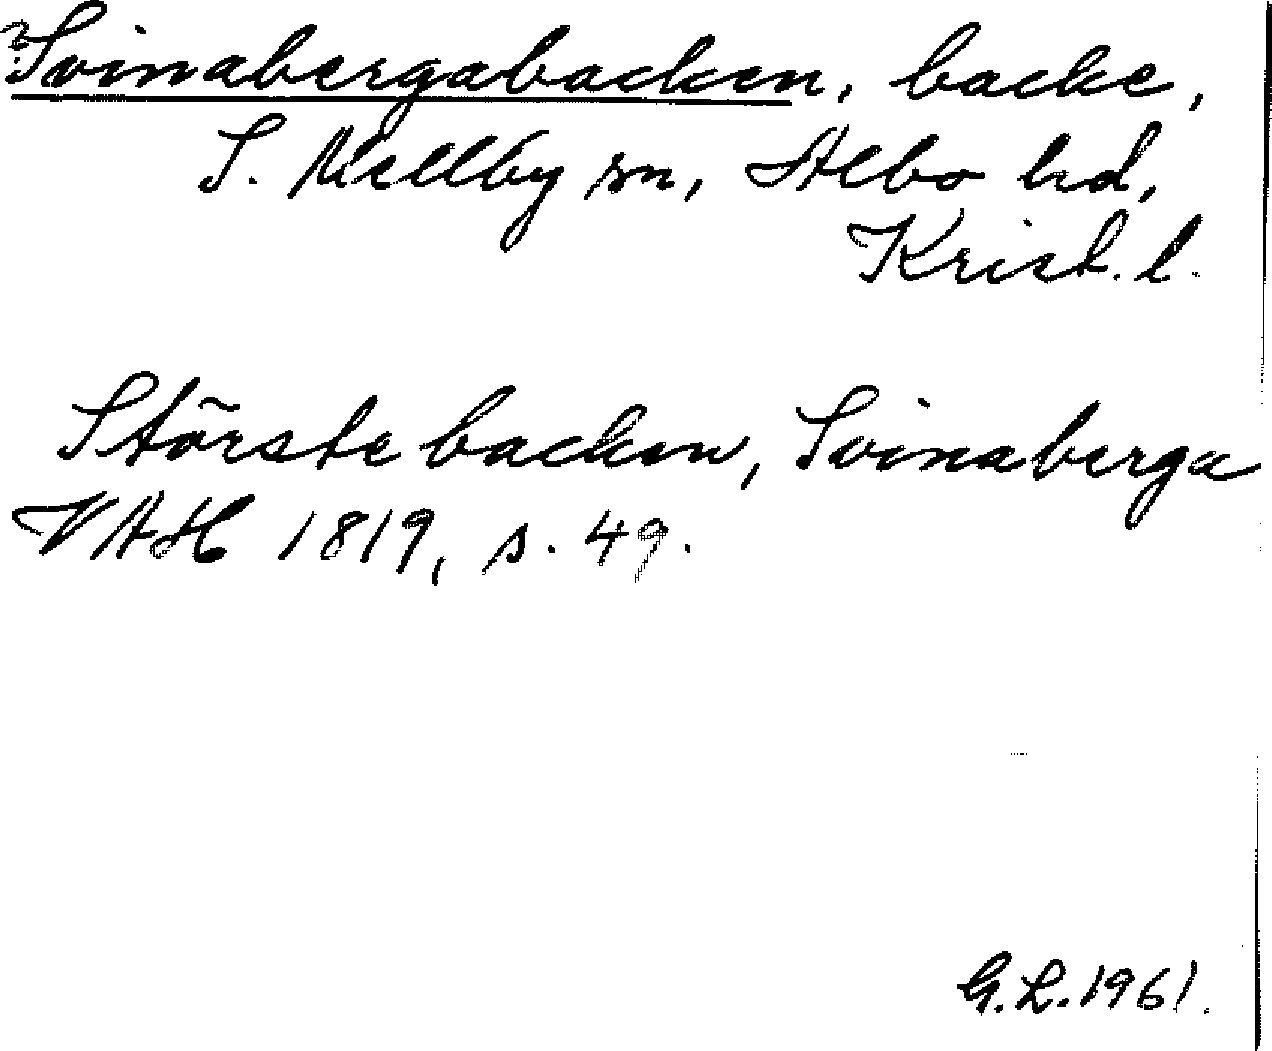 ?Svinabergabacken, backe,
S. Mellby sn, Albo hd,
Krist. l.
Störste backen, Svinaberga
VAH 1819, s. 49.
G.L. 1961.